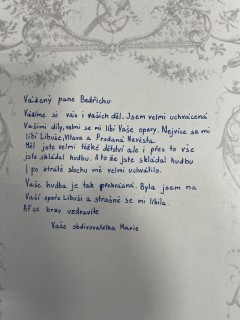 Vážený pane Bedřichu
Vážíme si vás i vašich děl. Jsem velmi uchvácená
Vašimi díly, velmi se mi líbí Vaše opery. Nejvíce se mi
líbí Libuše, Vltava a Prodaná Nevěsta.
Měl jste velmi těžké dětství ale i přes to vše
jste skládal hudbu. A to že jste skládal hudbu
i po ztrátě sluchu mě velmi uchvátilo.
Vaše hudba je tak prokreslená. Byla jsem na
Vaší opeře Libuši a strašně se mi líbila.
Ať se brzo uzdravíte
Vaše obdivovatelka Marie